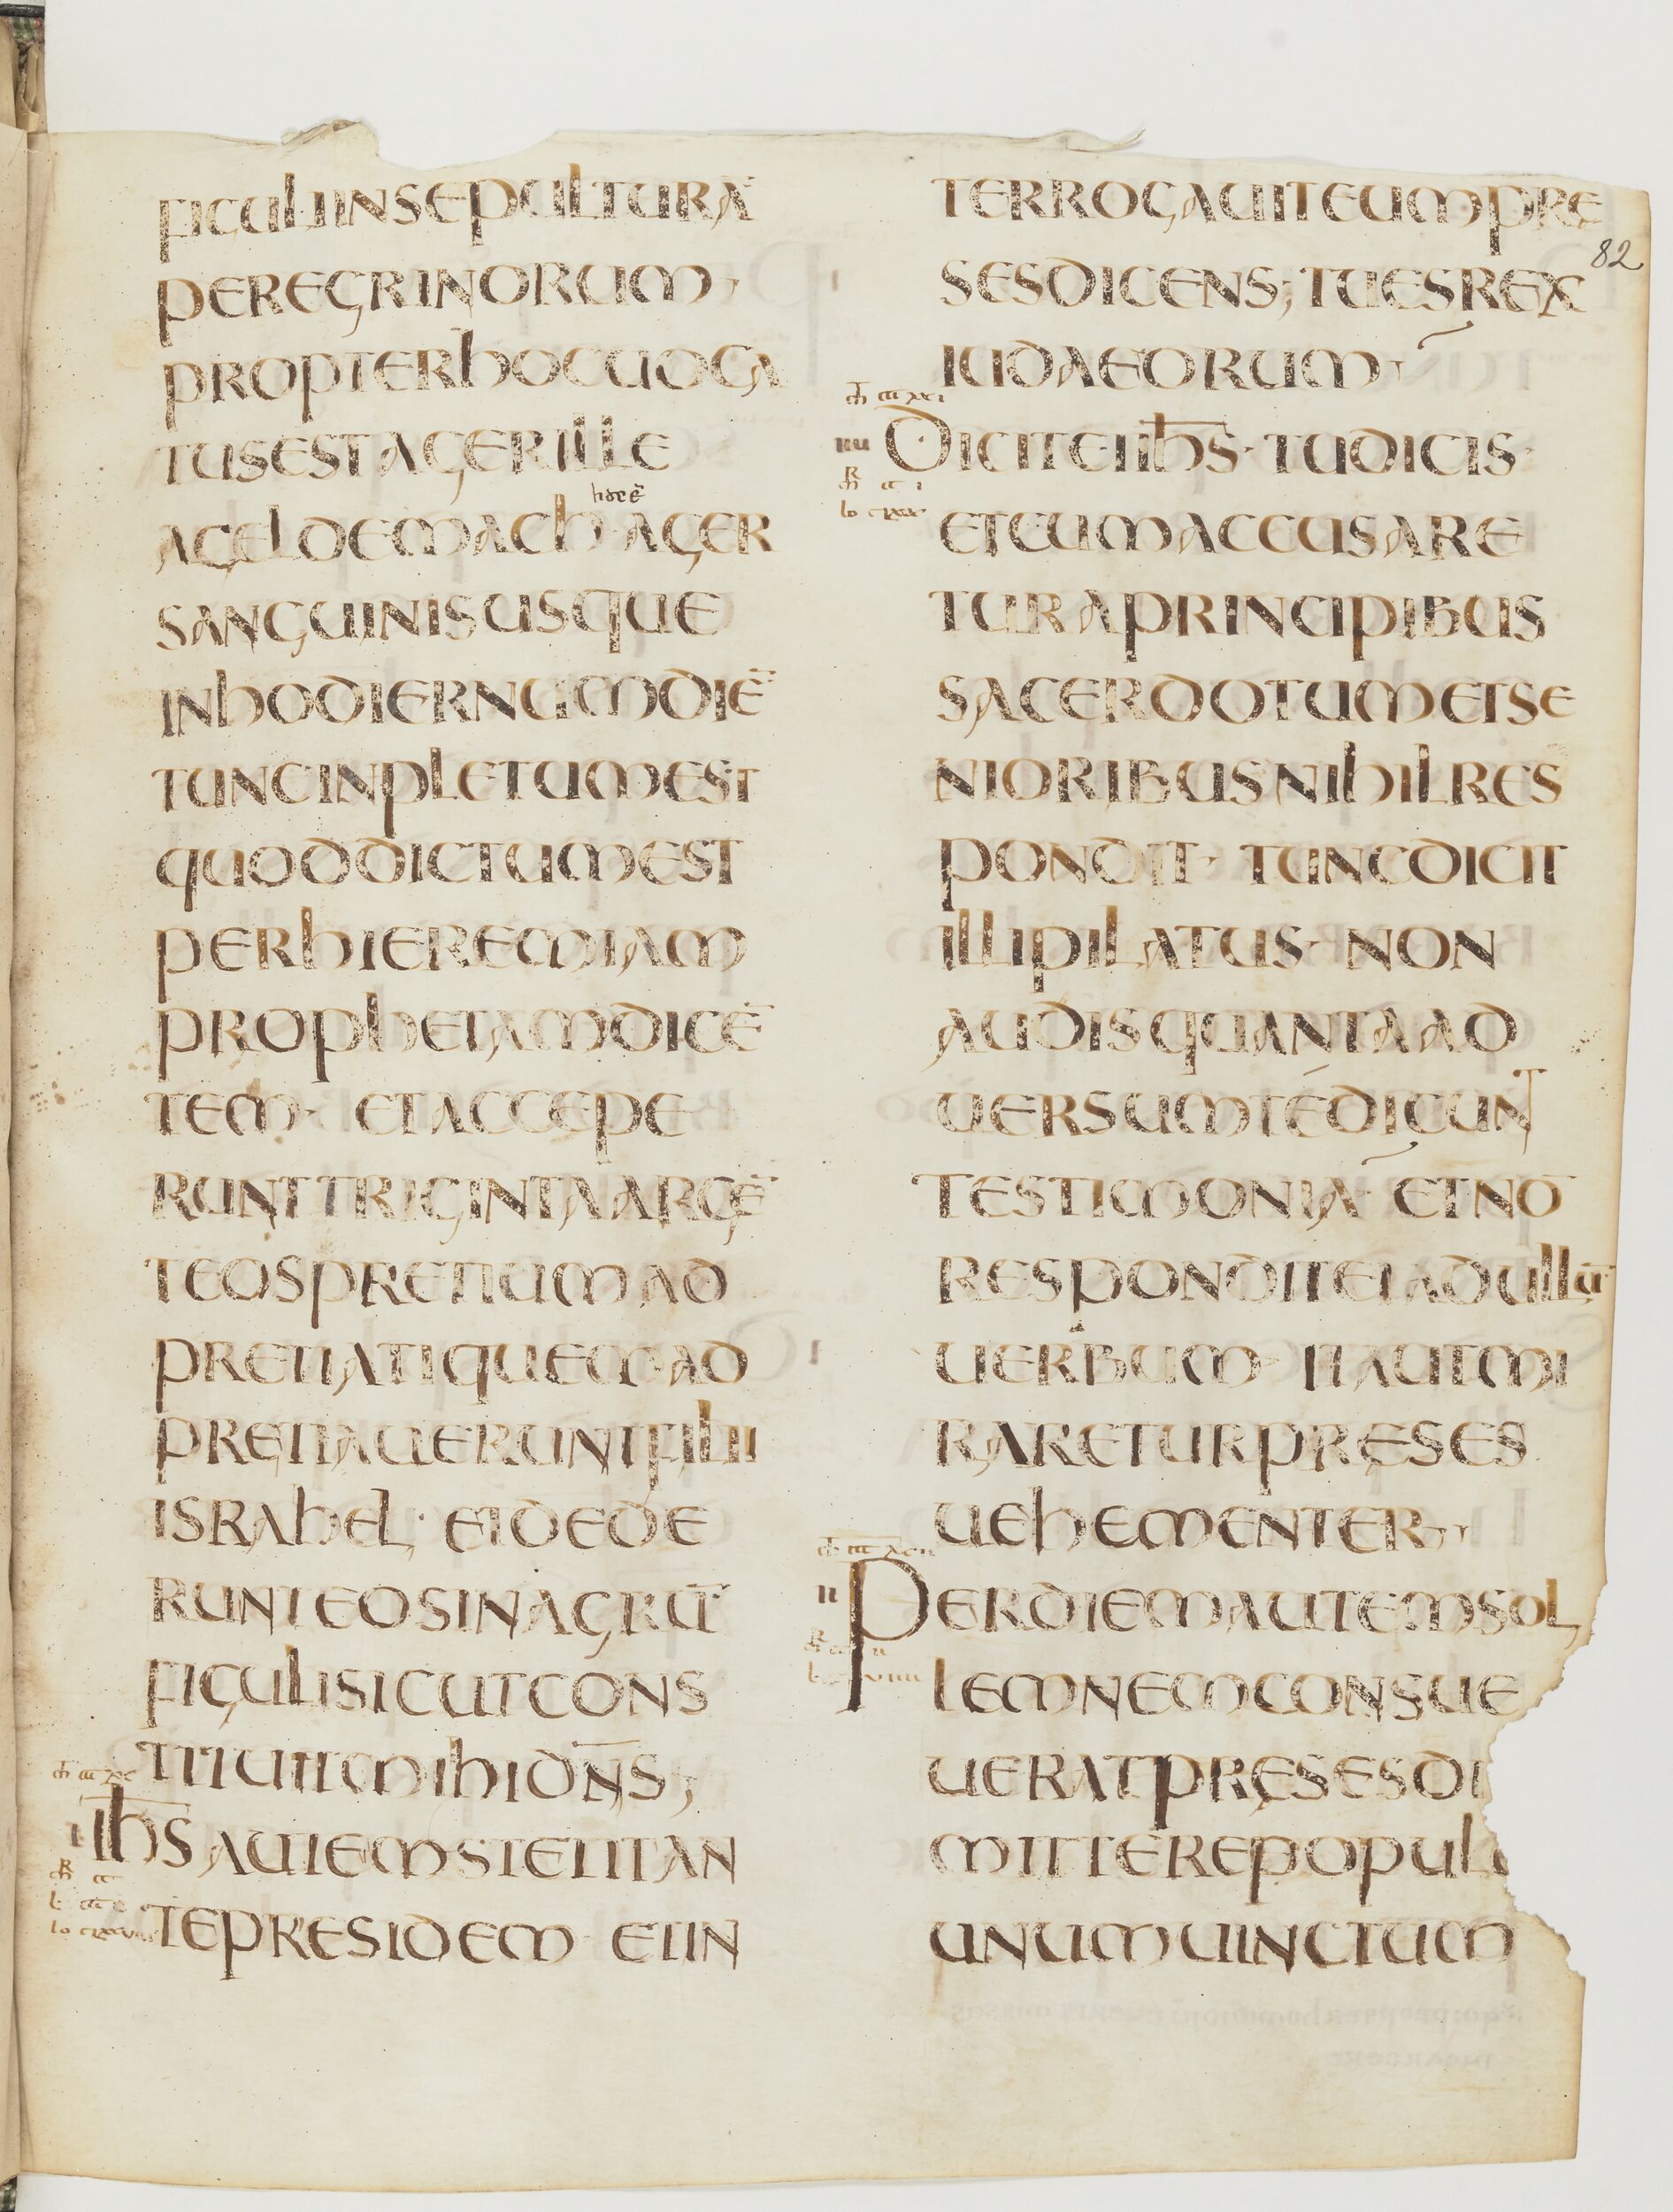 FICULIINSEPULTURĀ
PEREGRINORUM·
PROPTERHOCUOCA
TUSESTAGERILLE
hoc ē
ACELDEMACH·AGER
SANGUINISUSQUE
INHODIERNUMDIĒ
TUNCINPLETUMEST
QUODDICTUMEST
PERHIEREMIAM
PROPHETAMDICĒ
TEM· ETACCEPE
RUNTTRIGINTAARGĒ
TEOSPRETIUMAD
PRETIATIQUEMAD
PRETIAUERUNTFILII
ISRAHEL· ETDEDE
RUNTEOSINAGRŪ
FIGULISICUTCONS
TITUITMIHIDN̄S;
IH̄SAUTEMSTETITAN
TEPRESIDEM· ETIN
TERROGAUITEUMPRE
82
SESDICENS; TUESREX
IUDAEORUM·
DICITEIIH̄S· TUDICIS·
ETCUMACCUSARE
TURAPRINCIPIBUS
SACERDOTUMETSE
NIORIBUSNIHILRES
PONDIT· TUNCDICIT
ILLIPILATUS· NON
AUDISQUANTAAD
UERSUMTÉDICUNT
TESTIMONIA· ETNŌ
RESPONDITEIADULLŪ
UERBUM· ITAUTMI
RARETURPRĘSES
UEHEMENTER·
II PERDIEMAUTEMSOL
LEMNEMCONSUE
UERATPRĘSESDI
MITTEREPOPUL
UNUMUINCTUM